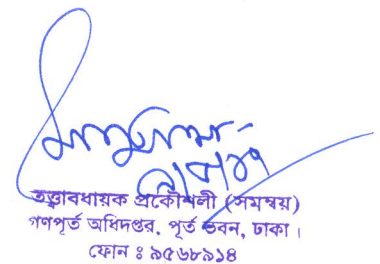 তত্ত্বাবধায়ক প্রকৌশলী (সমন্বয়)
গণপূর্ত অধিদপ্তর, পূর্ত ভবন, ঢাকা।
ফোন ঃ ৯৫৬৮৯১৪